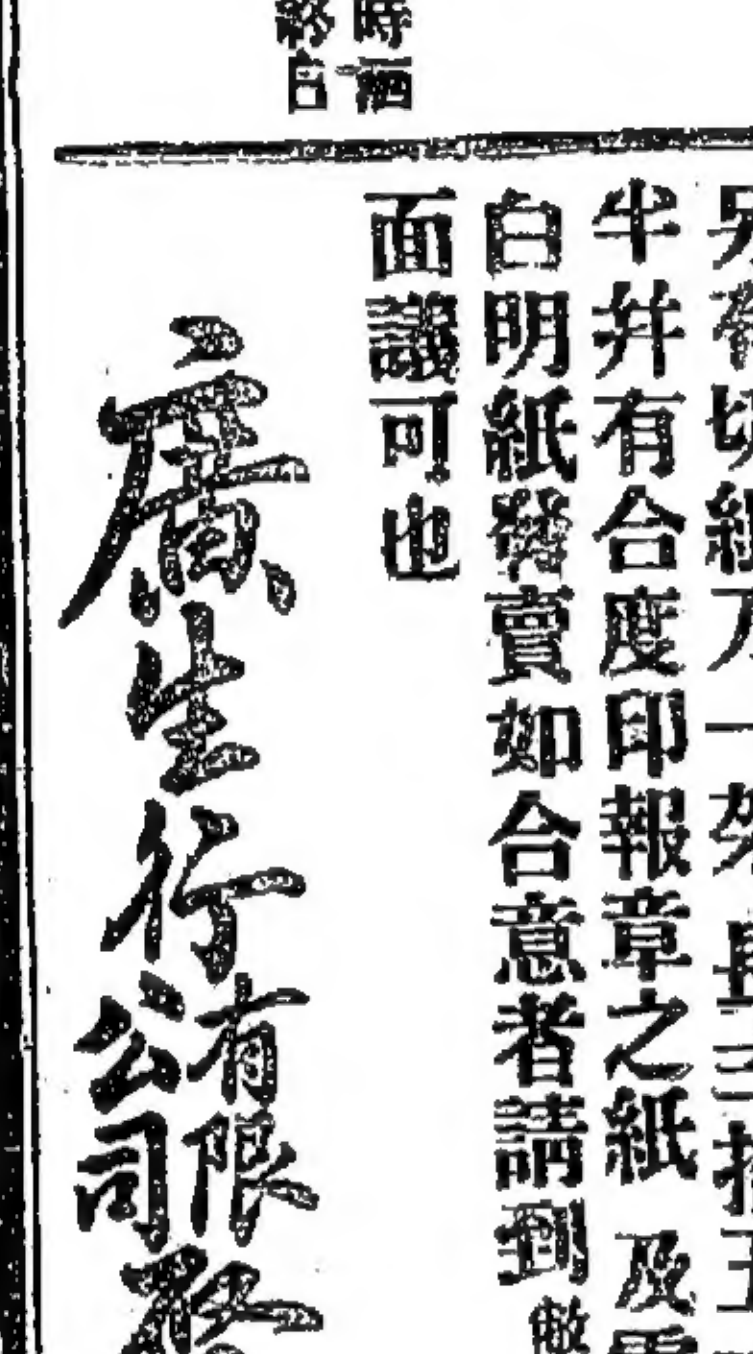 時洒
白
切紙刀一架
半并有合度印報章之紙及
白明紙發賣如合意者請到敝
面議可也
廣生行有限公司